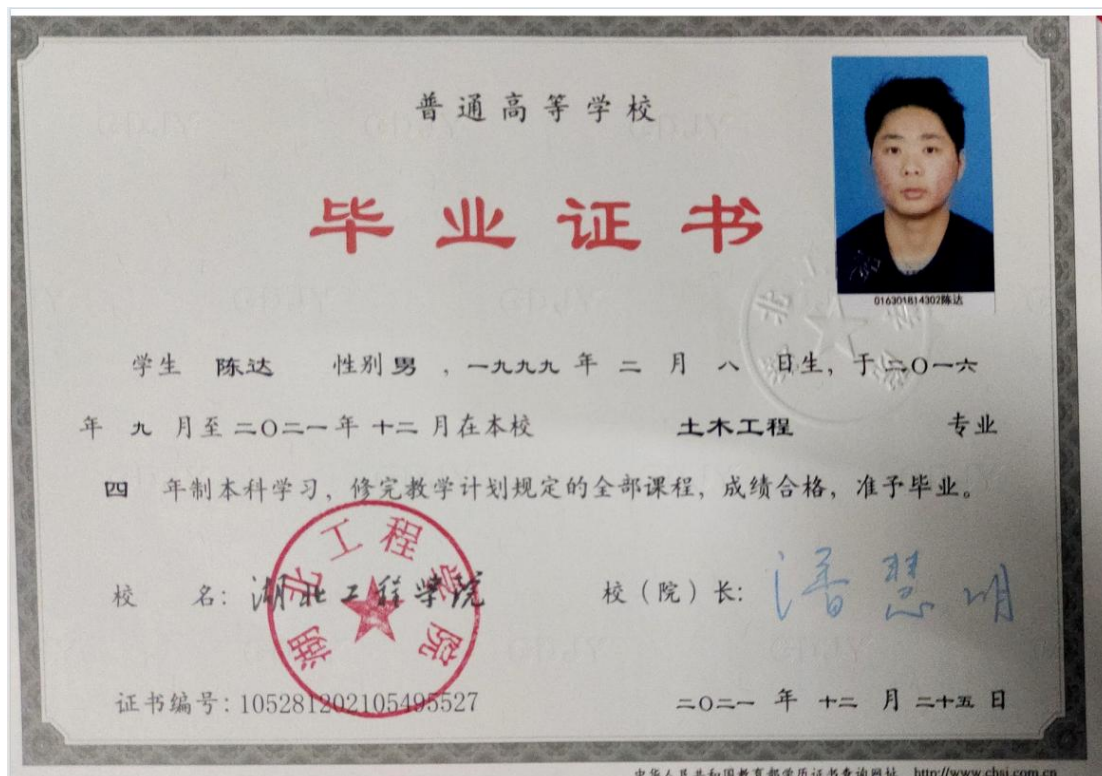 普通高等学校
毕业证书
016301814302陈达
学生 陈达 性别 男 ，一九九九 年 二 月 八 日生，于 二〇一六
年 九 月至 二〇二一 年 十二 月在本校 土木工程 专业
四 年制本科学习，修完教学计划规定的全部课程，成绩合格，准予毕业。
校 名：湖北工程学院
湖北工程学院
校（院）长：潘慧明
证书编号：105281202105495527
二〇二一 年 十二 月 二十五 日
中华人民共和国教育部学历证书查询网址 http://www.chsi.com.cn